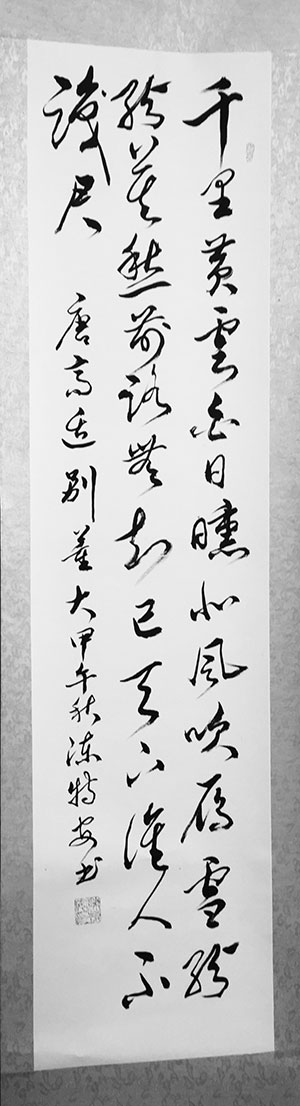 千里黄雲白日曛北風吹雁雪紛
紛莫愁前路無知己天下誰人不
識君 唐高适別董大甲午秋陳特安书